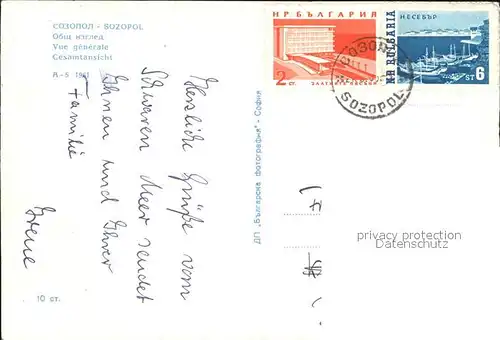 СОЗОПОЛ - SOZOPOL
Общ изглед
Vue générale
Gesamtansicht
A-5 1961
Herzliche Grüße vom
Schwarzen Meer sendet
Ihnen und Ihrer
Familie
Irene
10 ст.
ДП „Българска фотография“ - София
НР БЪЛГАРИЯ
2 СТ.
НЕСЕБЪР
НР BULGARIA
СТ 6
SOZOPOL
privacy protection
Datenschutz